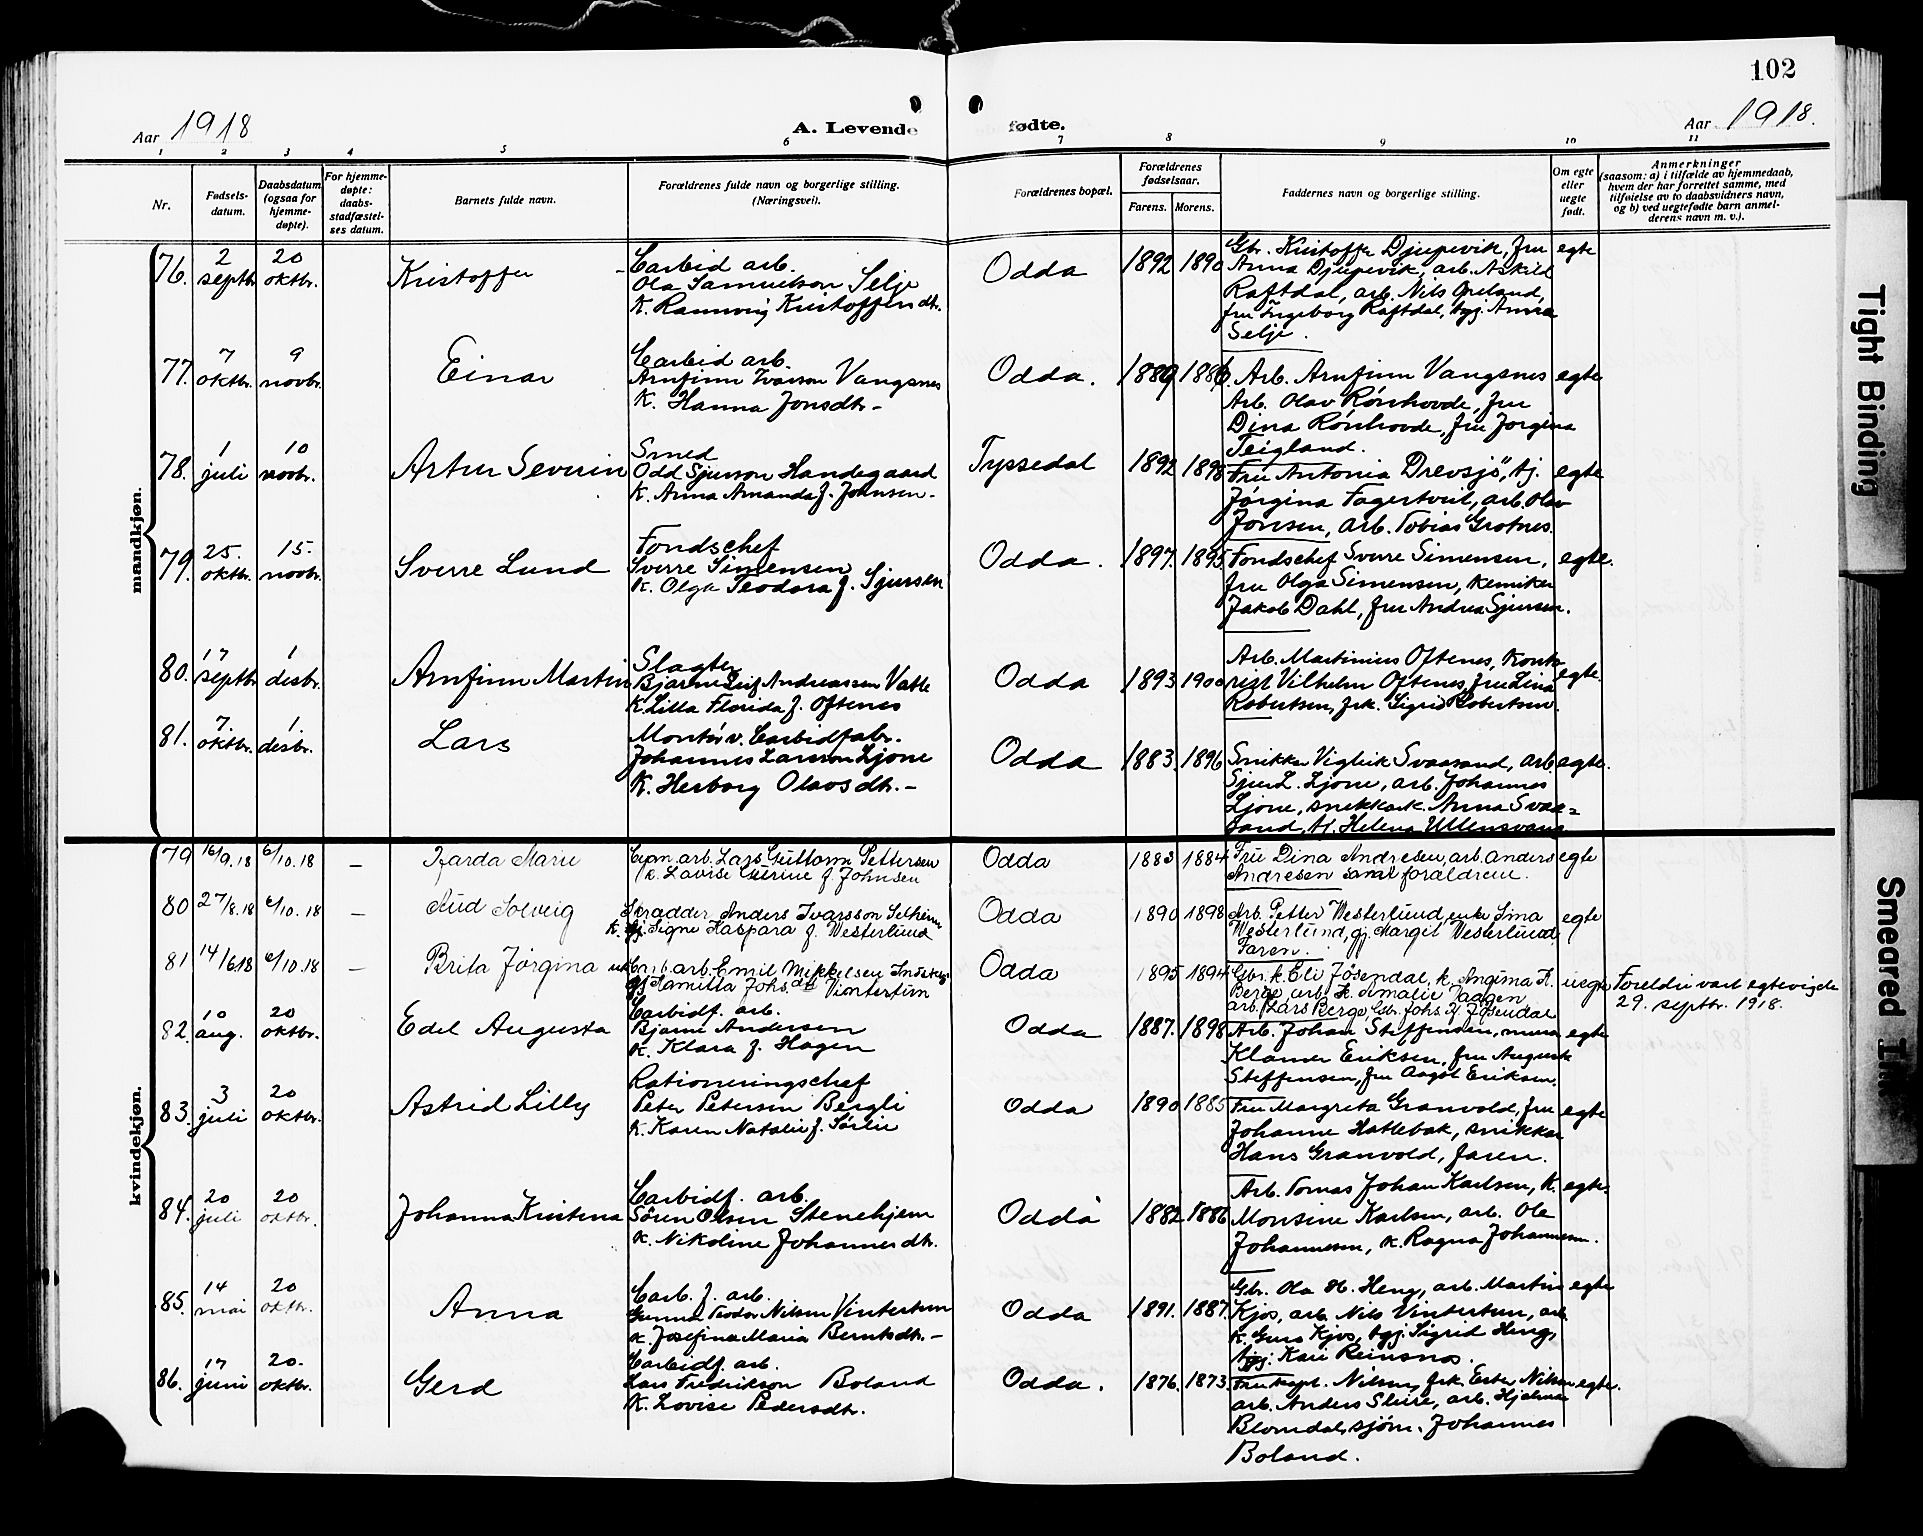 102
Aar 1918
A. Levende
fødte.
Aar 1918.
1 2 3 4 5 6 7 8 9 10 11
Nr.
Fødsels-
datum.
Daabsdatum
(ogsaa for
hjemme-
døpte).
For hjemme-
døpte:
daabs-
stadfæstel-
ses datum.
Barnets fulde navn.
Forældrenes fulde navn og borgerlige stilling.
(Næringsvei).
Forældrenes bopæl.
Forældrenes
fødselsaar.
Farens. Morens.
Faddernes navn og borgerlige stilling.
Om egte
eller
uegte
født.
Anmerkninger
(saasom: a) i tilfælde av hjemmedaab,
hvem der har forrettet samme, med
tilføielse av to daabsvidners navn,
og b) ved uegtefødte barn anmel-
derens navn m. v.).
mandkjøn.
76. 2 septbr. 20 oktbr. Kristoffer
Carbid arb.
Ola Samuelson Selje
K. Rannveig Kristoffersdtr.
Odda 1892 1890
Gbr. Kristoffer Djupevik, fru
Anna Djupevik, arb. Askild
Raftdal, arb. Nils Opeland,
fru Ingeborg Raftdal, tjg. Anna
Selje.
egte
77. 7 oktbr. 9 novbr. Einar
Carbid arb.
Arnfinn Ivarson Vangsnes
K. Hanna Jonsdtr. -
Odda. 1889 1886
Arb. Arnfinn Vangsnes
Arb. Olav Rónhovde, fru
Dina Rónhovde, fru Jorgina
Teigland.
egte
78. 1 juli 10 novbr. Artur Severin
Smed
Odd Sjurson Handegaard
K. Anna Amanda f. Johnsen -
Tyssedal 1892 1898
Fru Antonia Drevsjö, tj.
Jórgina Fagertveit, arb. Olav
Jonsen, arb. Tobias Grotnes.
egte
79. 25. oktbr. 15. novbr. Sverre Lund
Fondschef
Sverre Simensen
K. Olga Teodora f. Sjursen
Odda. 1897. 1895
Fondschef Sverre Simensen,
fru Olga Simensen, kemiker
Jakob Dahl, fru Andrea Sjursen.
egte.
80. 17 septbr. 1 desbr. Arnfinn Martin
Slagter
Bjarne Leif Andreassen Vatle
K. Lilla Florida f. Oftenes
Odda 1893 1900
Arb. Martinius Oftenes, konto-
rist Vilhelm Oftenes, fru Lina
Robertsen, frk. Sigrid Robertsen.
egte.
81. 7. oktbr. 1. desbr. Lars
Montór v. Carbidfabr.
Johannes Larsson Ljone
K. Herborg Olavsdtr. -
Odda 1883. 1896
Snikker Viglik Svaasand, arb.
Sjur L. Ljone, arb. Johannes
Ljone, snekkark. Anna Svaa=
sand, tj. Helena Ullensvang
egte.
kvindekjøn.
79 16/9.18 6/10.18 - Harda Marie
Cyan. arb. Lars Guttorm Pettersen
K. Lovise Cecine f. Johnsen
Odda 1883 1884
Fru Dina Andresen, arb. Anders
Andresen samt forældrene.
egte
80 27/8.18 6/10.18 - Aud Solveig
Skradder Anders Ivarsson Selheim
K. Signe Kaspara f. Westerlund
Odda 1890 1898
Arb. Petter Westerlund, enke Lina
Westerlund, gj. Margit Westerlund
Faren.
egte
81 14/6 18 6/10.18 - Brita Jórgina
Carb. arb. Emil Mikkelsen
gj. Kamilla Johs.dtr Vintertun
Odda 1895 1894
Gbr. k. Eli Jósendal, k. Angima K.
Berge, arb. k. Amalie Jaabæn,
arb. Lars Berge, Gbr. Johs. K. Jósendal
uegte
Foreldri vart egtevigde
29. septbr. 1918.
82. 10 aug. 20 oktbr. Edel Augusta
Carbidf. arb.
Bjarne Andersen
K. Klara f. Hagen
Odda 1887. 1898
Arb. Johan Steffensen, murer
Klamer Eriksen, fru Augusta
Steffensen, fru Aagot Eriksen.
egte
83. 3 juli 20 oktbr. Astrid Lilly
Rationeringschef
Peter Petersen Bergli
K. Karen Natalie f. Sórlie
Odda 1890 1885
Fru Margreta Granvold, fru
Johanne Hattebak, snikker
Hans Granvold, faren.
egte
84. 20 juli 20 oktbr. Johanna Kristina
Carbidf. arb.
Sóren Olsen Stenehjem
K. Nikoline Johannesdtr.
Odda 1882 1886
Arb. Tomas Johan Karlsen, K.
Monsine Karlsen, arb. Ole
Johannesen, K. Ragna Johannesen.
egte.
85. 14 mai 20 oktbr. Anna
Carb. f. arb.
Gunnar Teodor Nilsen Vintertun
K. Josefina Maria Berntsdtr. -
Odda 1891. 1887.
Gbr. Ola H. Heng, arb. Martin
Kjos, arb. Nils Vintertun, arb.
K. Guro Kjos, tjg. Sigrid Heng,
tjg. Kari Reinsnos.
egte
86. 17 juni 20. oktbr. Gerd
Carbidf. arb.
Lars Fredrikson Boland
K. Lovise Pedersdtr.
Odda. 1876. 1873.
Fru kapt. Nilsen, frk. Ester Nilsen
arb. Anders Sleire, arb. Hjalmar
Blomdal, sjóm. Johannes
Boland.
egte.
Tight Binding
Smeared Ink